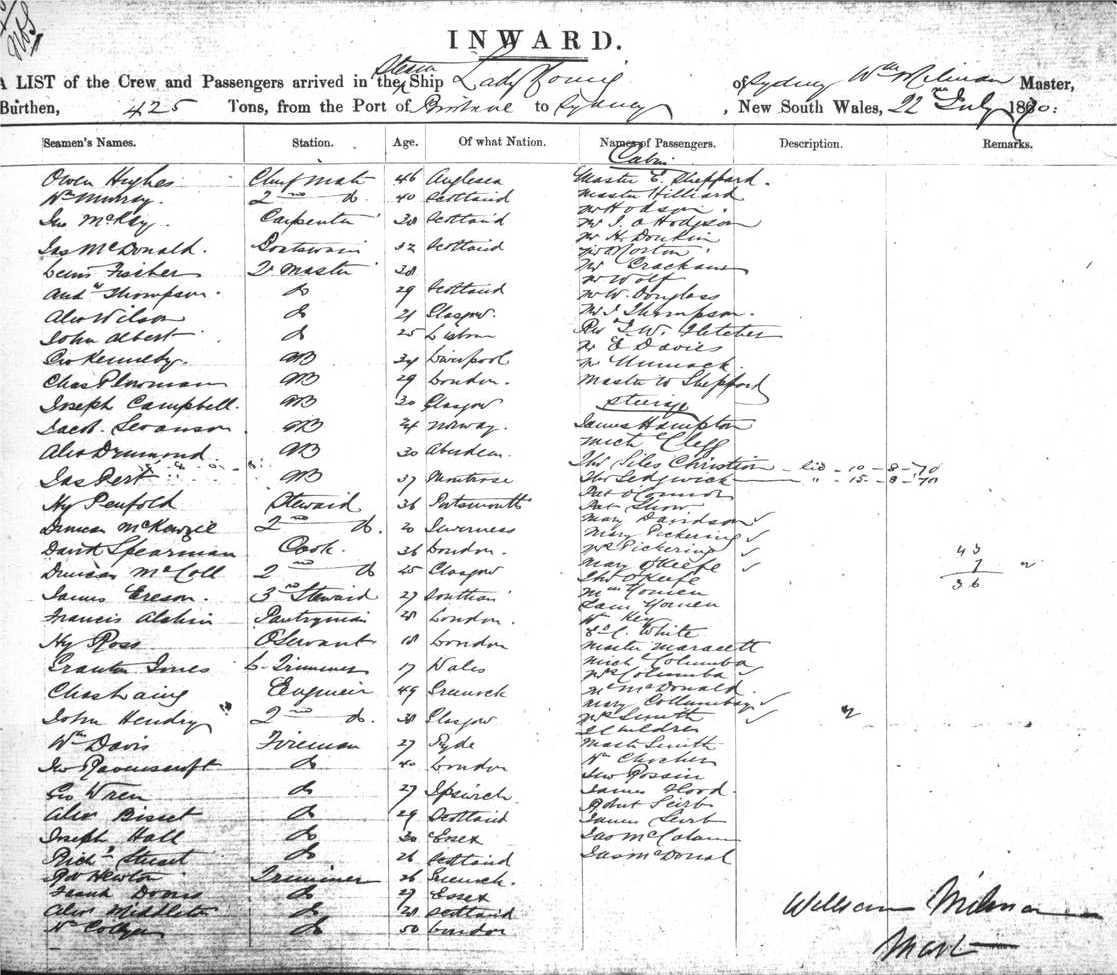 INWARD.
A LIST of the Crew and Passengers arrived in the Steam Ship Lady Young of Sydney Wm Milman Master,
Burthen, 425 Tons, from the Port of Brisbane to Sydney, New South Wales, 22nd July 1870:
Seamen's Names. Station. Age. Of what Nation. Names of Passengers. Description. Remarks.
Cabin
Owen Hughes Chief Mate 46 Anglesea Master E. Sheppard.
Wm Murray. 2nd do. 40 Scotland Master Hilliard
Mr Hodson.
Jno McKay. Carpenter 38 Scotland Mr J. A Hodgson
Mr H. Donkin
Jas McDonald. Boatswain 32 Scotland Mr Morton
Lewis Fischer 2r Master 38 Mr
Mr Wolf
Andw Thompson. do 29 Scotland Mr W. Douglass
Alex Wilson do 21 Glasgow. Mr J. Thompson.
John Albert do 25 Lisbon Rev J. W. Fletcher
Mr E Davies
Geo Kennedy. AB 34 Liverpool Mr
Chas Plowman AB 29 London. Master Sheppard
Joseph Campbell. AB 30 Glasgow Steerage
Jacob. Swanson. AB 24 Norway. James Hampton
Mich Clegg
Alex Drummond AB 30 Aberdeen. Thos Giles Christian - 10 - 8 - 70
Jas Pert AB 37 Montrose Thos Sedgwick " - 15 - 8 - 70
Pat O'Connor
Hy Penfold Steward 36 Portsmouth Pat Show
Mary Davidson ✓
Duncan McKenzie 2nd do. 20 Inverness Mary Pickering ✓
David Spearman Cook. 36 London. Mrs Pickering ✓ 43
Mary O'Keefe ✓ 7
Duncan McColl 2nd do 25 Glasgow. Thos O'Keefe 36
James 3rd Steward 27
Francis Pantryman 28 London. Wm Key
White
Hy Ross O Servant 18 London Master
Jones C. Trimmer 17 Wales Mich Columba
Mrs Columba ✓
Chas Laing Engineer 49 Greenock Mr McDonald.
Mary ✓
John Hendry 2nd do. 38 Glasgow Mrs Smith ✓
Children
Wm Davis Fireman 27 Ryde Mast Smith
Jno Ravenscroft do 40 London Wm
Jno Rossin
Geo Wren do 27 Ipswich. James Flood.
Robert
Alex Bisset do 29 Scotland James
Joseph Hall do 30 Essex Jas
Richd Stewart do 26 Scotland Jas McDonal
Newton Trimmer 26 Greenock.
Frank do 27 Essex
Alex Middleton do 28 Scotland
Wm do 50 London
William Milman
Mast